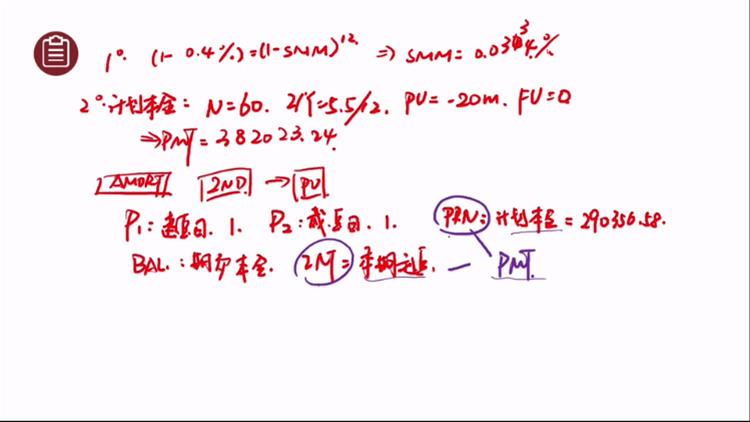 1°. (1- 0.4%)=(1-SMM)^12. ⇒ SMM= 0.0334%
2°.计划本金: N=60. I/Y=5.5/12. PV=-20m. FV=0
⇒PMT=382023.24.
AMORT 2ND → PV
P1: 1. P2: 1. PRN: 计划本金 = 290356.58.
BAL.: 期初本金. INT= 本期 — PMT.